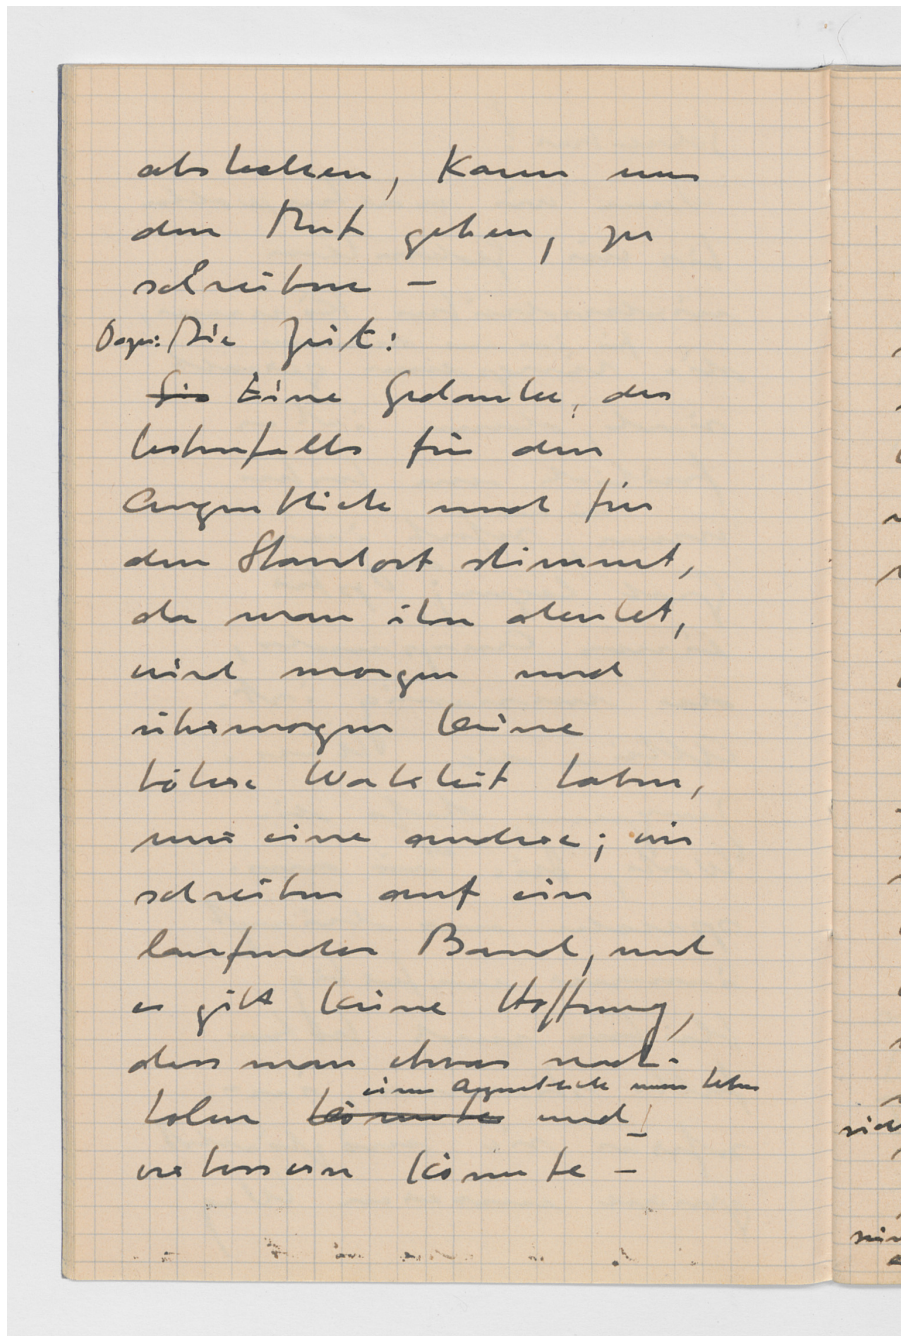 kann uns
den Mut geben, zu
schreiben –
Dazu: / Die Zeit:
Eine Gedanke, der
bestenfalls für den
Augenblick und für
den Standort stimmt,
da man ihn denkt,
wird morgen und
übermorgen keine
höhere Wahrheit haben,
nur eine andere; wir
schreiben auf ein
laufendes Band, und
es gibt keine Hoffnung,
dass man etwas nach-
einen Augenblick
holen könnte und
verbessern könnte –